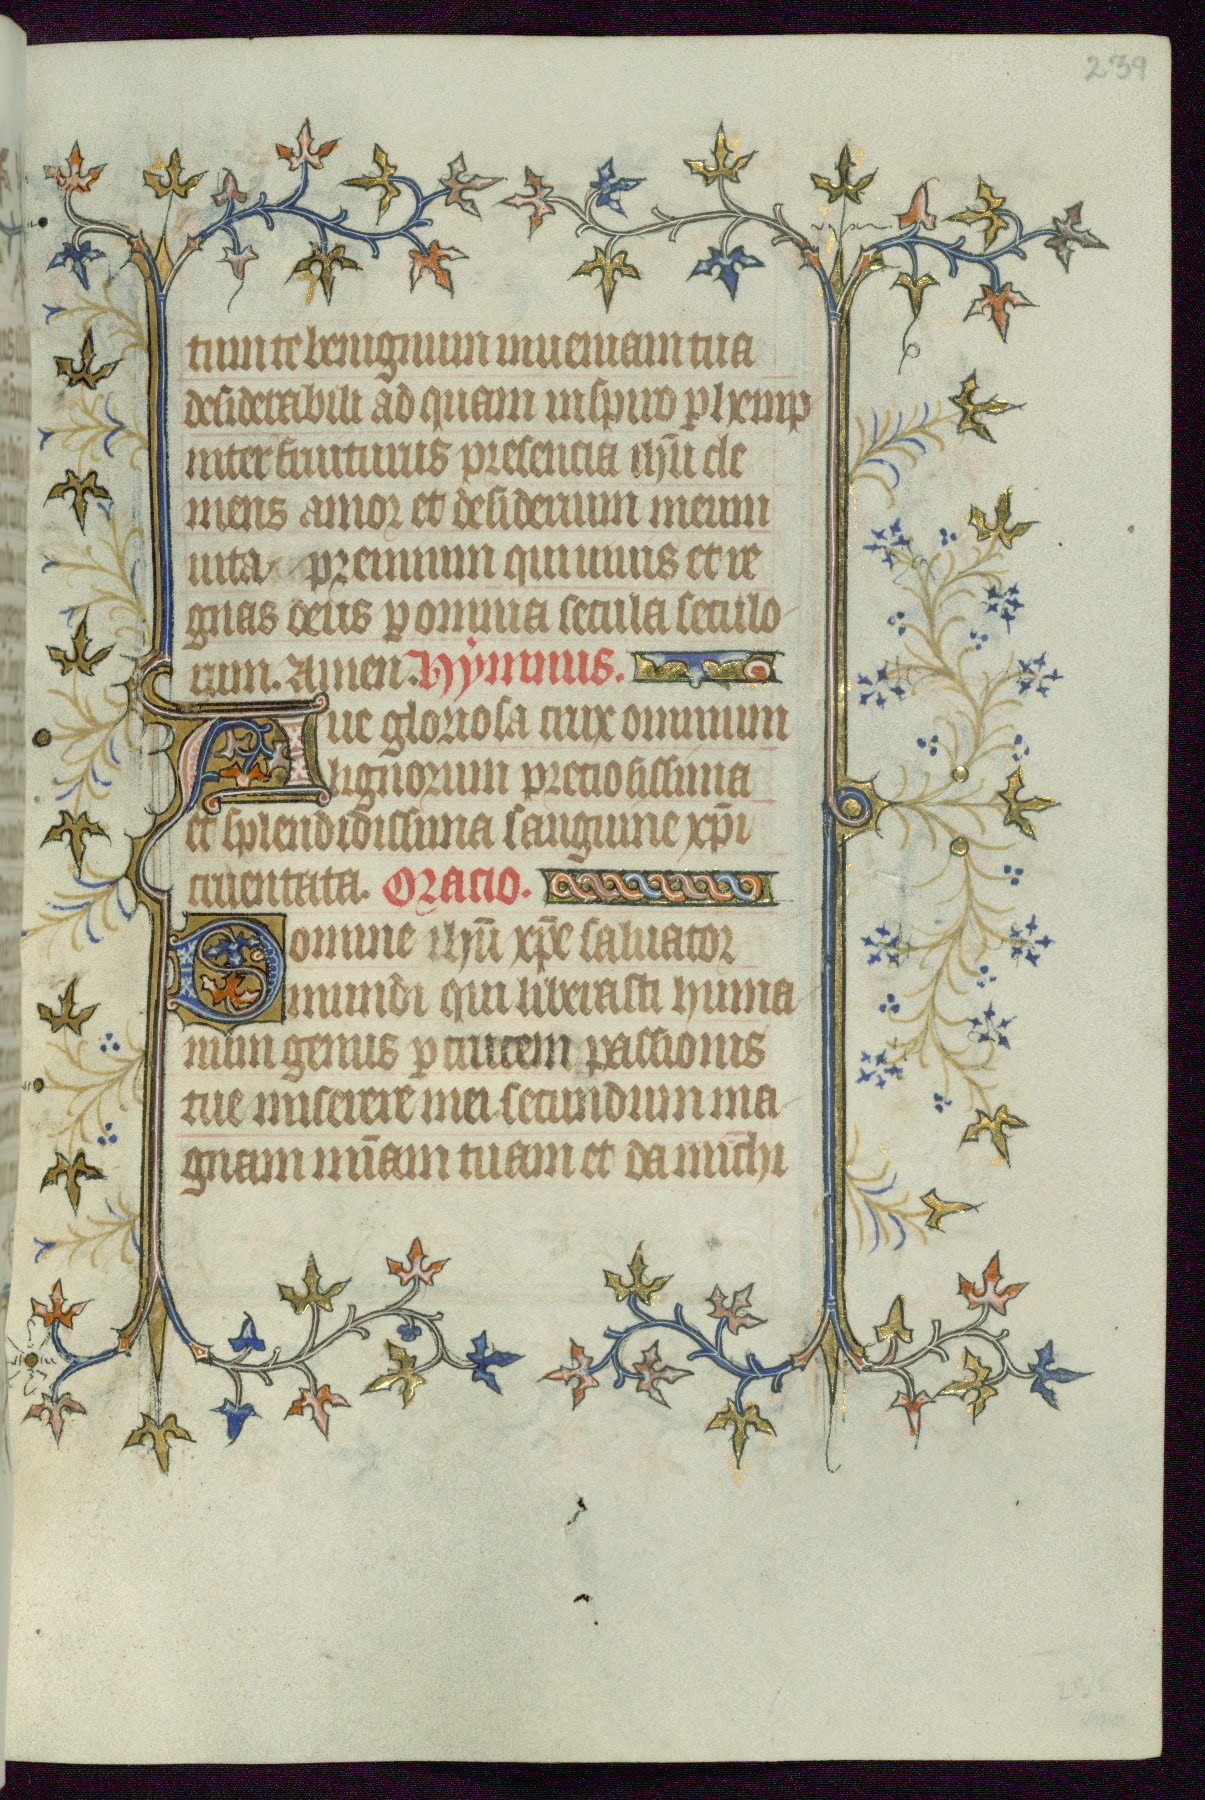 239
tum te benignum inueniam tua
desiderabili ad quam inspiro p̱hemp
niter fruiturus presencia ihū cle
mens amor et desiderium meum
uita premium qui uiuis et re
gnas deus ꝑ omnia secula seculo
rum. Amen. Hymnus.
Aue gloriosa crux omnium
lignorum preciosissima
et splendidissima sanguine xp̄i
cruentata. Oracio.
Domine ihū xp̄e saluator
mundi qui liberasti huma
num genus ꝑ crucem passionis
tue miserere mei secundum ma
gnam mīam tuam et da michi